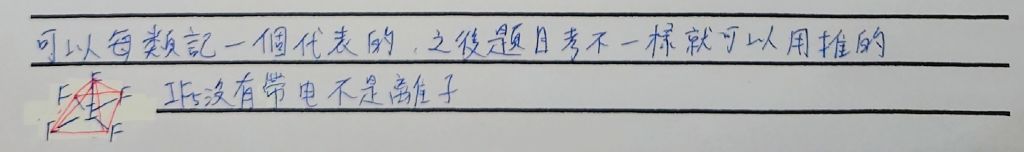 可以每類記一個代表的，之後題目考不一樣就可以用推的
IF5沒有帶电不是離子
F
F F
F F